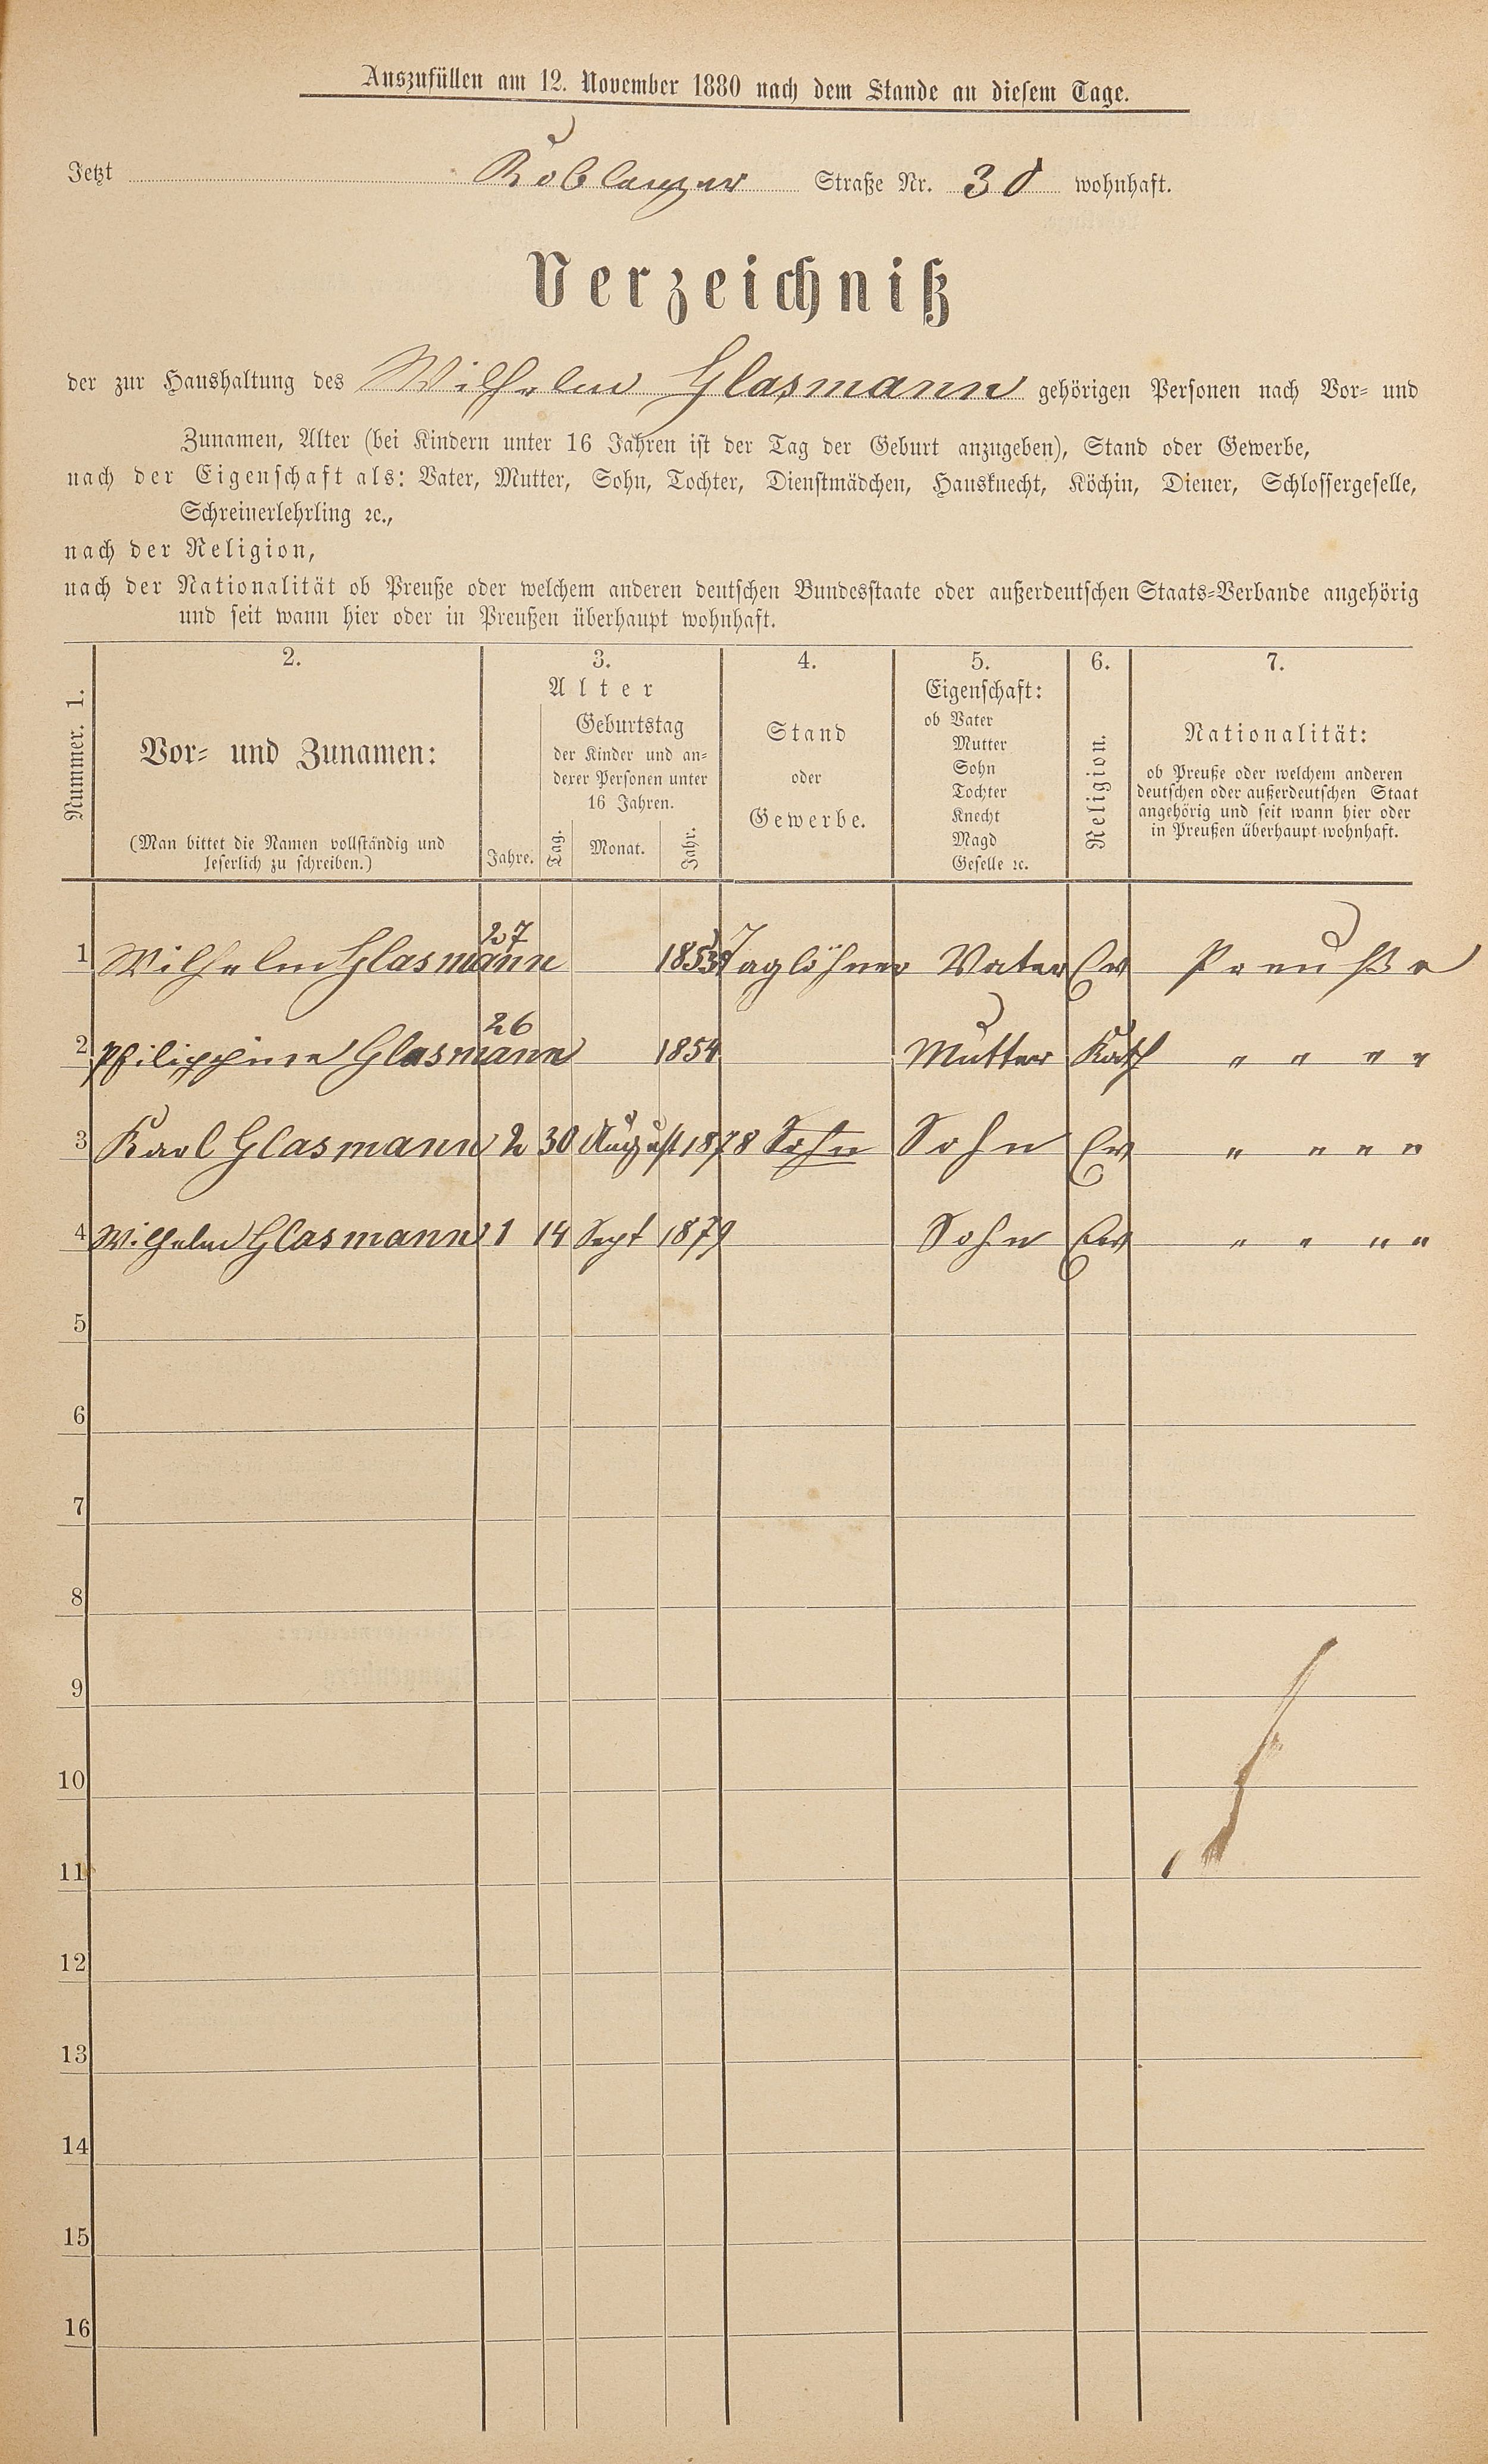 Auszufüllen am 12. November 1880 nach dem Stande an diesem Tage.
Jetzt Koblenzer Straße Nr. 30 wohnhaft.
Verzeichniß
der zur Haushaltung des Wilhelm Glasmann gehörigen Personen nach Vor- und
Zunamen, Alter (bei Kindern unter 16 Jahren ist der Tag der Geburt anzugeben), Stand oder Gewerbe,
nach der Eigenschaft als: Vater, Mutter, Sohn, Tochter, Dienstmädchen, Hausknecht, Köchin, Diener, Schlossergeselle,
Schreinerlehrling ꝛc.,
nach der Religion,
nach der Nationalität ob Preuße oder welchem anderen deutschen Bundesstaate oder außerdeutschen Staats-Verbande angehörig
und seit wann hier oder in Preußen überhaupt wohnhaft.
Nummer. 1.
2.
Vor- und Zunamen:
(Man bittet die Namen vollständig und
leserlich zu schreiben.)
3.
Alter
Jahre.
Geburtstag
der Kinder und an-
derer Personen unter
16 Jahren.
Tag. Monat. Jahr.
4.
Stand
oder
Gewerbe.
5.
Eigenschaft:
ob Vater
Mutter
Sohn
Tochter
Knecht
Magd
Geselle ꝛc.
6.
Religion.
7.
Nationalität:
ob Preuße oder welchem anderen
deutschen oder außerdeutschen Staat
angehörig und seit wann hier oder
in Preußen überhaupt wohnhaft.
1 Wilhelm Glasmann 27 1853 Taglöhner Vater Ev Preuße
2 Philippine Glasmann 26 1854 Mutter Kath " " " "
3 Karl Glasmann 2 30 August 1878 Sohn Sohn Ev " " " "
4 Wilhelm Glasmann 1 14 Sept 1879 Sohn Ev " " " "
5
6
7
8
9
10
11
12
13
14
15
16